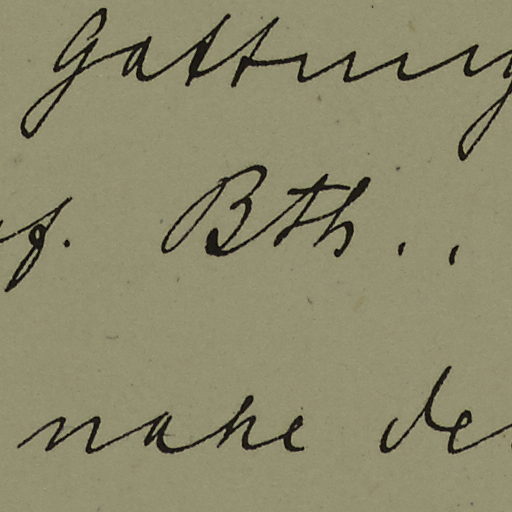 Gattung
f. Bth..
nahe de